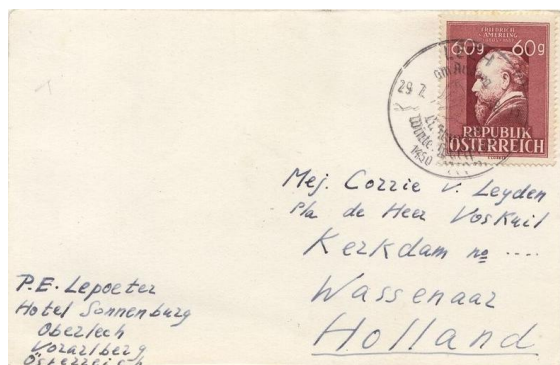 FRIEDRICH
v. AMERLING
60g 60g
REPUBLIK
ÖSTERREICH
29. 7.
1450
Mej. Corrie v. Leyden
p/a de Heer Voskuil
Kerkdam no ....
Wassenaar
Holland
P.E. Lepoeter
Hotel Sonnenburg
Oberlech
Vorarlberg
Österreich